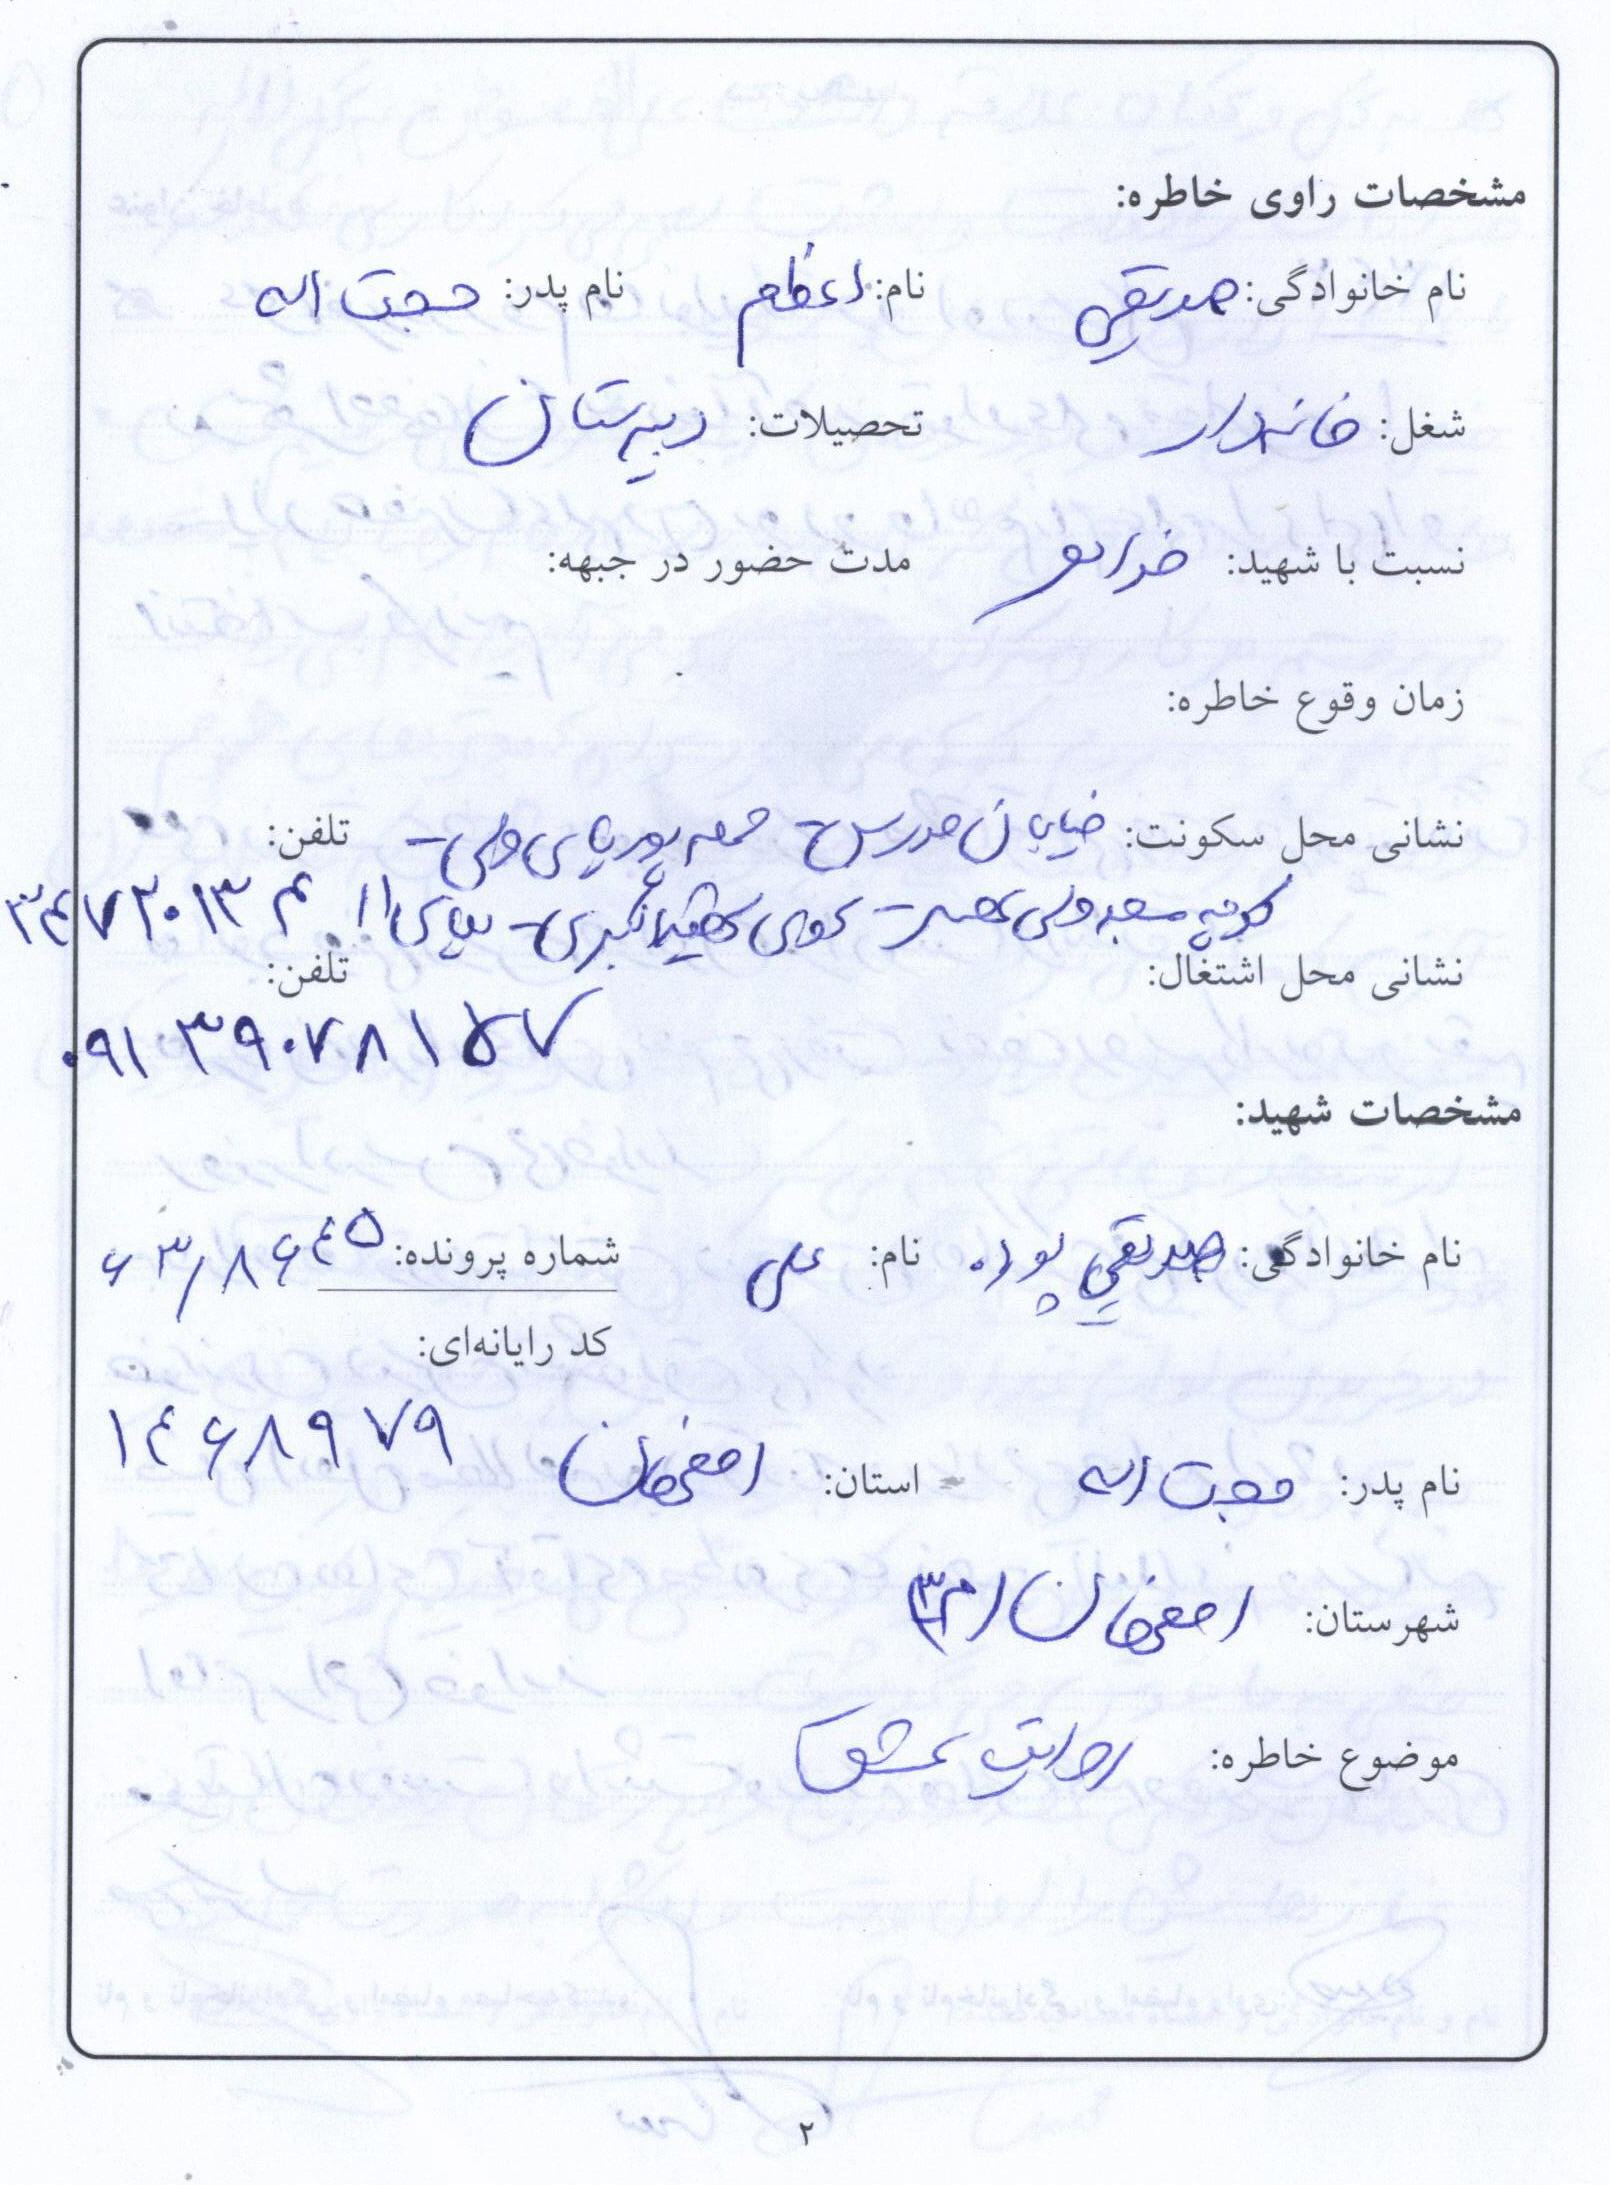 مشخصات راوی خاطره:
نام خانوادگی: صدیقی نام: اعظم نام پدر: حجت اله
شغل: خانه‌دار تحصیلات: دبیرستان
نسبت با شهید: خواهر مدت حضور در جبهه:
زمان وقوع خاطره:
نشانی محل سکونت: خیابان مدرس - پوریای ولی - تلفن:
کوچه مسجد ولی عصر - کوی شهید اکبری - پلاک ۱۱ ۳۴۷۲۰۱۳۴
نشانی محل اشتغال: تلفن:
۰۹۱۳۹۰۷۸۱۵۷
مشخصات شهید:
نام خانوادگی: صدیقی پوده نام: علی شماره پرونده: ۶۳/۸۶۴۵
کد رایانه‌ای:
۱۴۶۸۹۷۹
نام پدر: حجت اله استان: اصفهان
شهرستان: اصفهان / م۳
موضوع خاطره: روایت عشق
۲